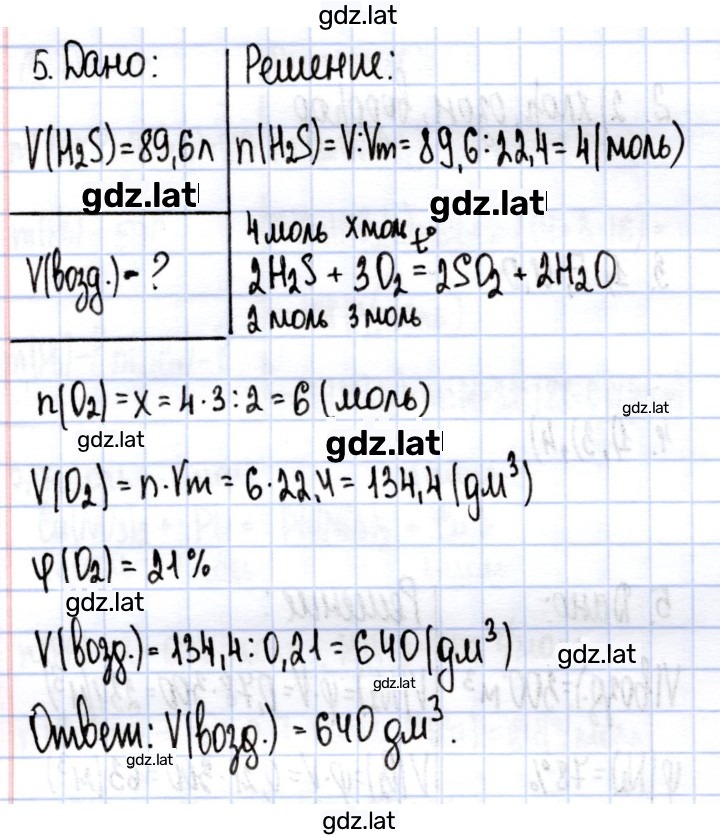 gdz.lat
5. Дано:
Решение:
V(H₂S)=89,6л
n(H₂S)=V:Vm=89,6:22,4=4(моль)
gdz.lat
gdz.lat
4 моль x моль
V(возд.)-?
2H₂S + 3O₂ =t° 2SO₂ + 2H₂O
2 моль 3 моль
n(O₂)=x=4·3:2=6(моль)
gdz.lat
gdz.lat
gdz.lat
V(O₂)=n·Vm=6·22,4=134,4(дм³)
φ(O₂)=21%
gdz.lat
V(возд.)=134,4:0,21=640(дм³)
gdz.lat
gdz.lat
Ответ: V(возд.)=640 дм³.
gdz.lat
gdz.lat